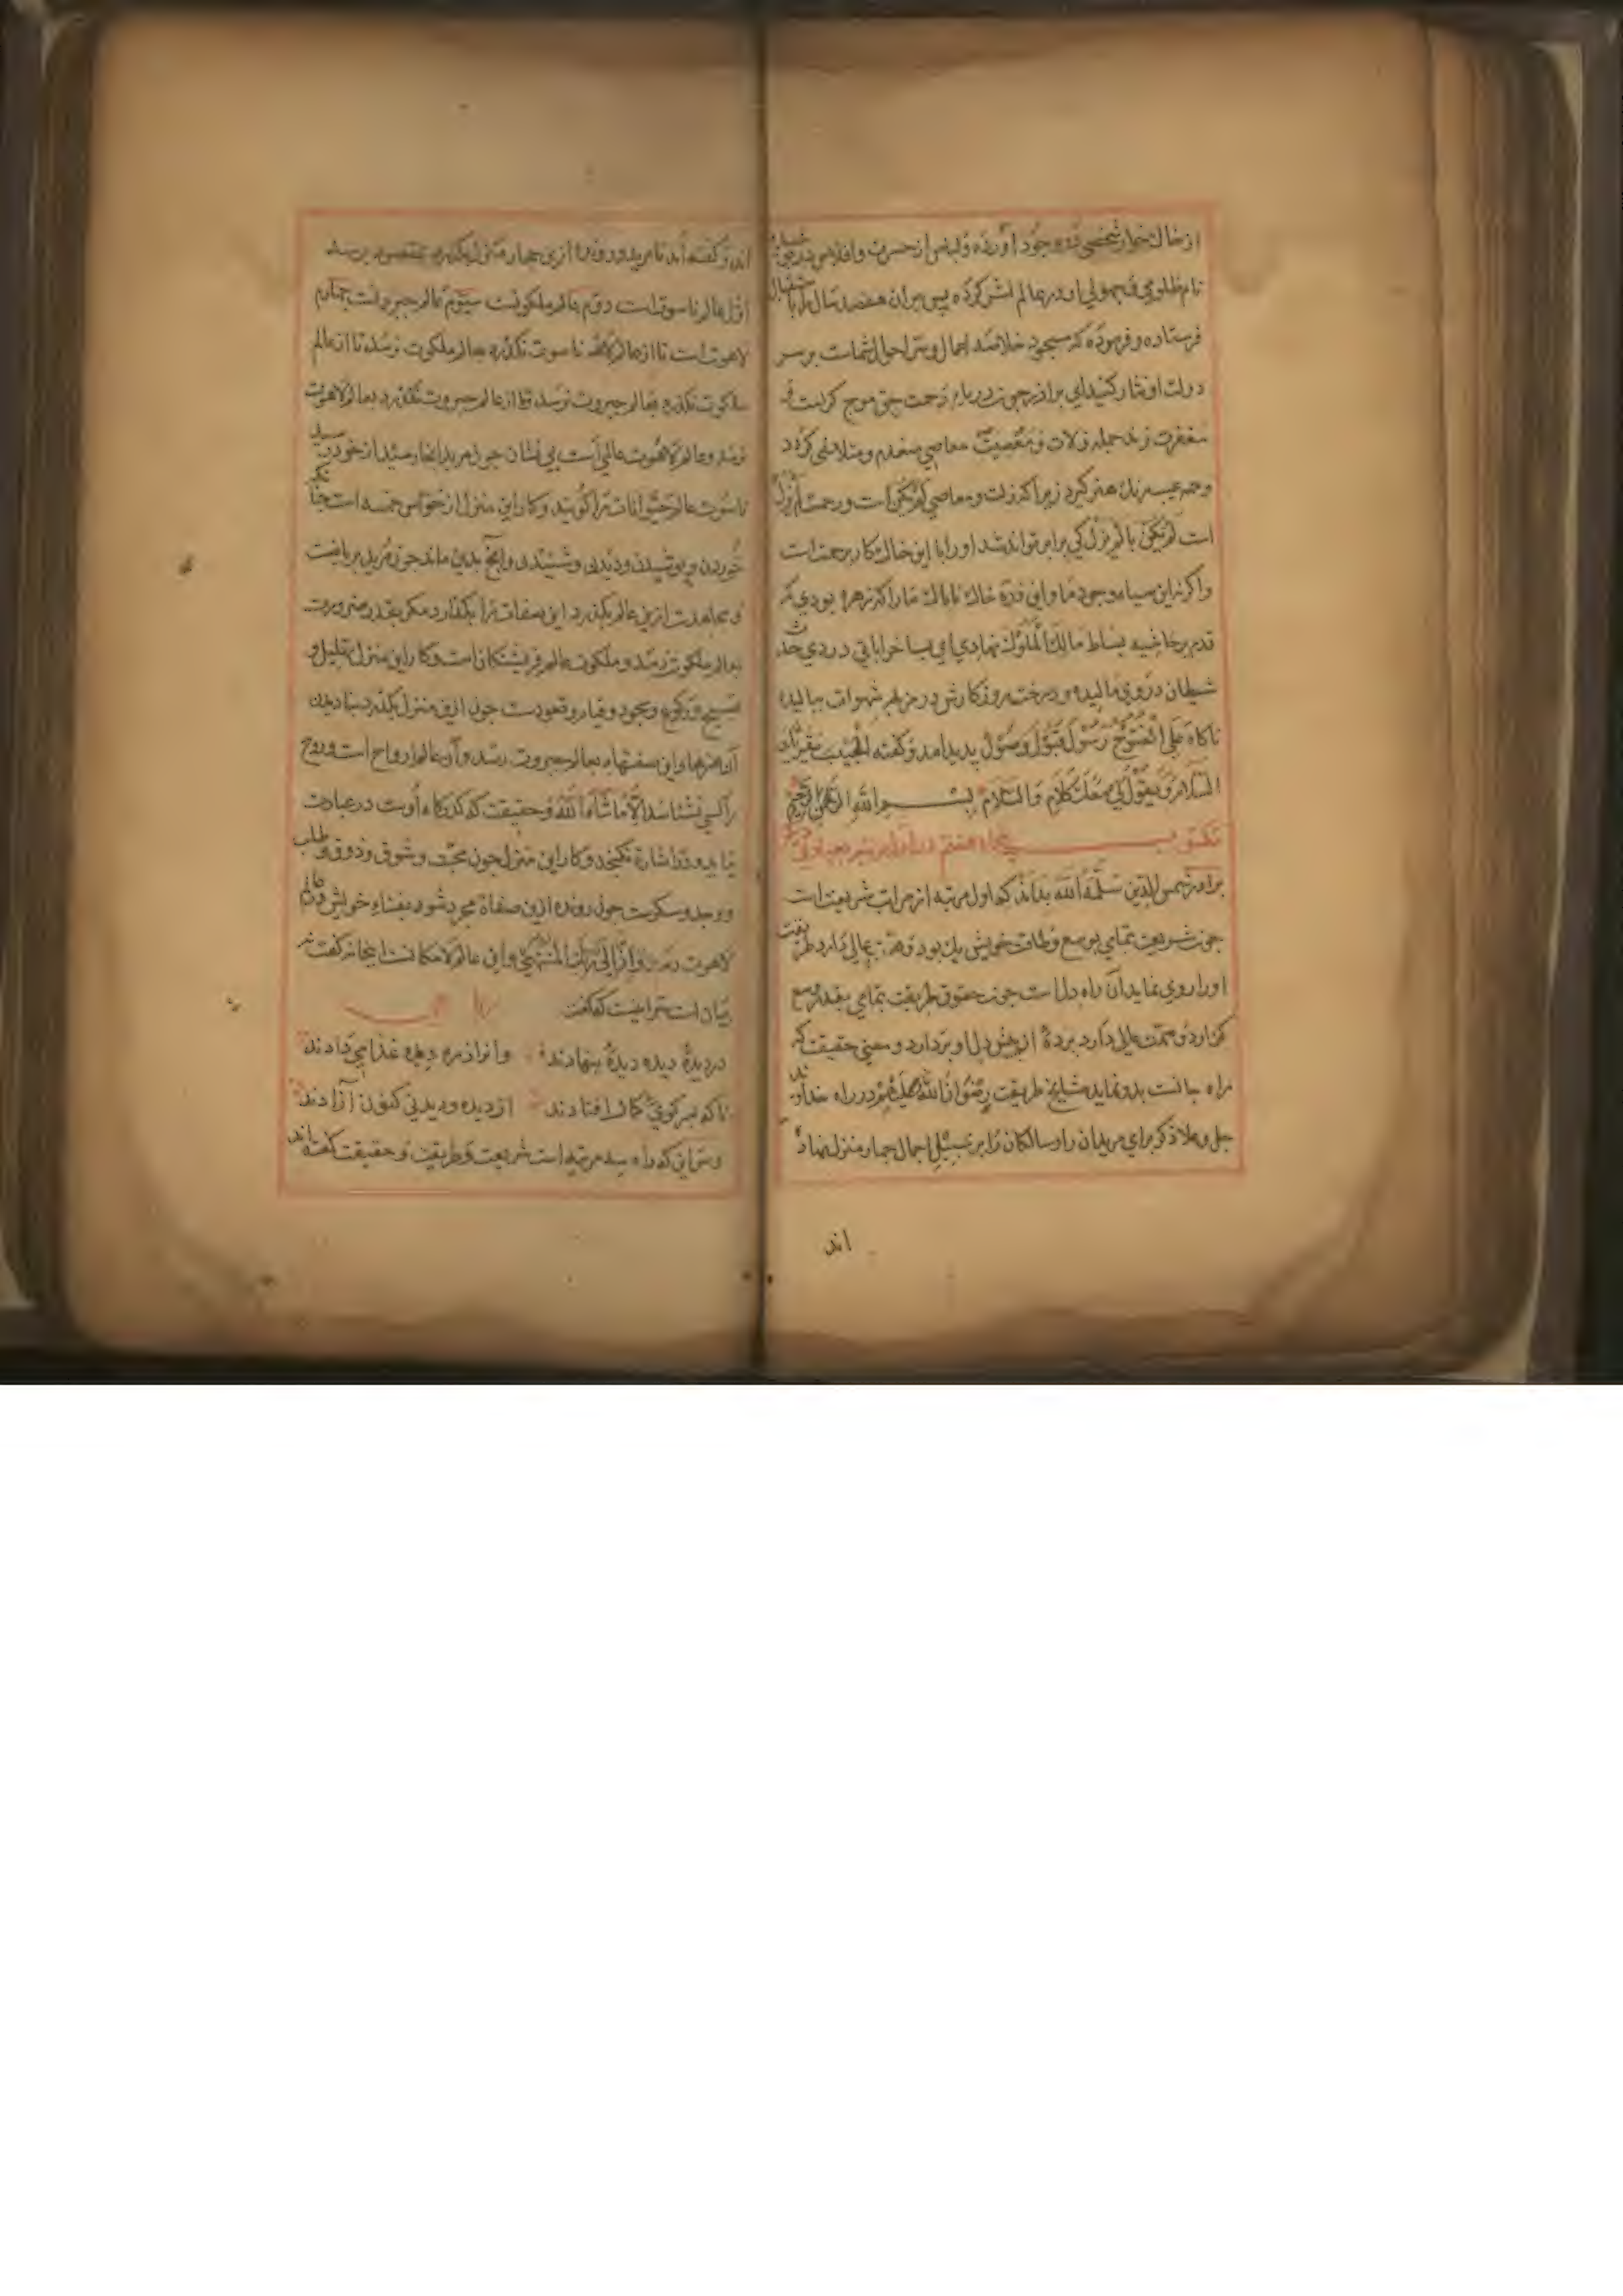 از خاک خوار شخصی در وجود آورده و لباس از حسرت و افلاس در
نام ظلومی و جهولی او در عالم نشر کرده پس بران هفصد سال
فرستاده و فرموده که سجود خلاصه اعمال و سر احوال شماست بر سر
دولت او نثار کنید ای برادر چون دریای رحمت حق موج کرامت و
مغفرت زند جمله زلات و معصیت معاصی منعدم و متلاشی گردد
و همه عیب رنک هنر گیرد زیرا که زلت و معاصی لم یکن است و رحمت لم یزل
است لم یکن با لم یزل کی برابر تواند شد او را با این خاک کار برحمت است
و اگر نه این سیاه وجود ما و این ذره خاک ناپاک ما را که زهره بودی که
قدم بر حاشیه بساط مالک الملوک نهادی ای بسا خراباتی دردی
شیطان در روی مالیده و درخت روزکارش در مزبله شهوات بالیده
ناکاه علی الفتوح رسول قبول وصول پدید آمد و گفته الحبیب یقرئک
السلام و یقول لی معک کلام والسلام بسم الله الرحمن الرحیم
مکتوب پنجاه هفتم در
برادر شمس الدین سلمه الله بداند که اول مرتبه از مراتب شریعت است
چون شریعت بتمامی بوسع و طاقت خویش بکند بود و همت عالی دارد طریقت
او را روی نماید آن راه دل است چون حقوق طریقت بتمامی بقدر وسع
گزارد و همت عالی دارد پرده از پیش دل او بردارد و معنی حقیقت که
راه جانست بدو نماید مشایخ طریقت رضوان الله علیهم در راه خداوند
جل و علا ذکر برای مریدان را و سالکان را بر سبیل اجمال چهار منزل نهاده
اند
اند و گفته اند تا مرید و رونده ازین چهار منزل نگذرد بمقصود نرسد
اول عالم ناسوت است دوم عالم ملکوتست سیوم عالم جبروتست چهارم
لاهوت است تا از عالم ناسوت نگذرد بعالم ملکوت نرسد تا از عالم
ملکوت نگذرد بعالم جبروت نرسد تا از عالم جبروت نگذرد بعالم لاهوت
نرسد و عالم لاهوت عالمی است بی نشان چون مرید انجا رسید از خود
ناسوت عالم حیوانات را گویند و کار این منزل از حواس خمسه است چنانکه
خوردن و پوشیدن و دیدن و شنیدن و آنچ بدین ماند چون مرید بریاضت
و مجاهدت ازین عالم بگذرد این صفات را بگذارد مگر بقدر ضرورت
بعالم ملکوت رسد و ملکوت عالم فریشتگان است و کار این منزل تهلیل و
تسبیح و رکوع و سجود و قیام و قعودست چون ازین منزل بگذرد بنادیدن
آن هنرها و این صفتها بعالم جبروت رسد و آن عالم ارواح است و روح
را کسی نشناسد الا ما شاء الله و حقیقت که کارگاه اوست در عبارت
نیاید و در اشارت نگنجد و کار این منزل چون محبت و شوق و ذوق و طلب
و وجد و سکرست چون رونده ازین صفاة مجرد شود بفناء خویش و عالم
لاهوت رسد و ان الی ربک المنتهی و این عالم لامکانست اینجا نه گفت
در دیدهٔ دیده دیدهٔ بنهادند وانرا ز ره دیده غذا می دادند
ناکه بسر کوی کمال افتادند از دیده و دیدنی کنون آزادند
و سر این که راه سه مرتبه است شریعت و طریقت و حقیقت گفته اند